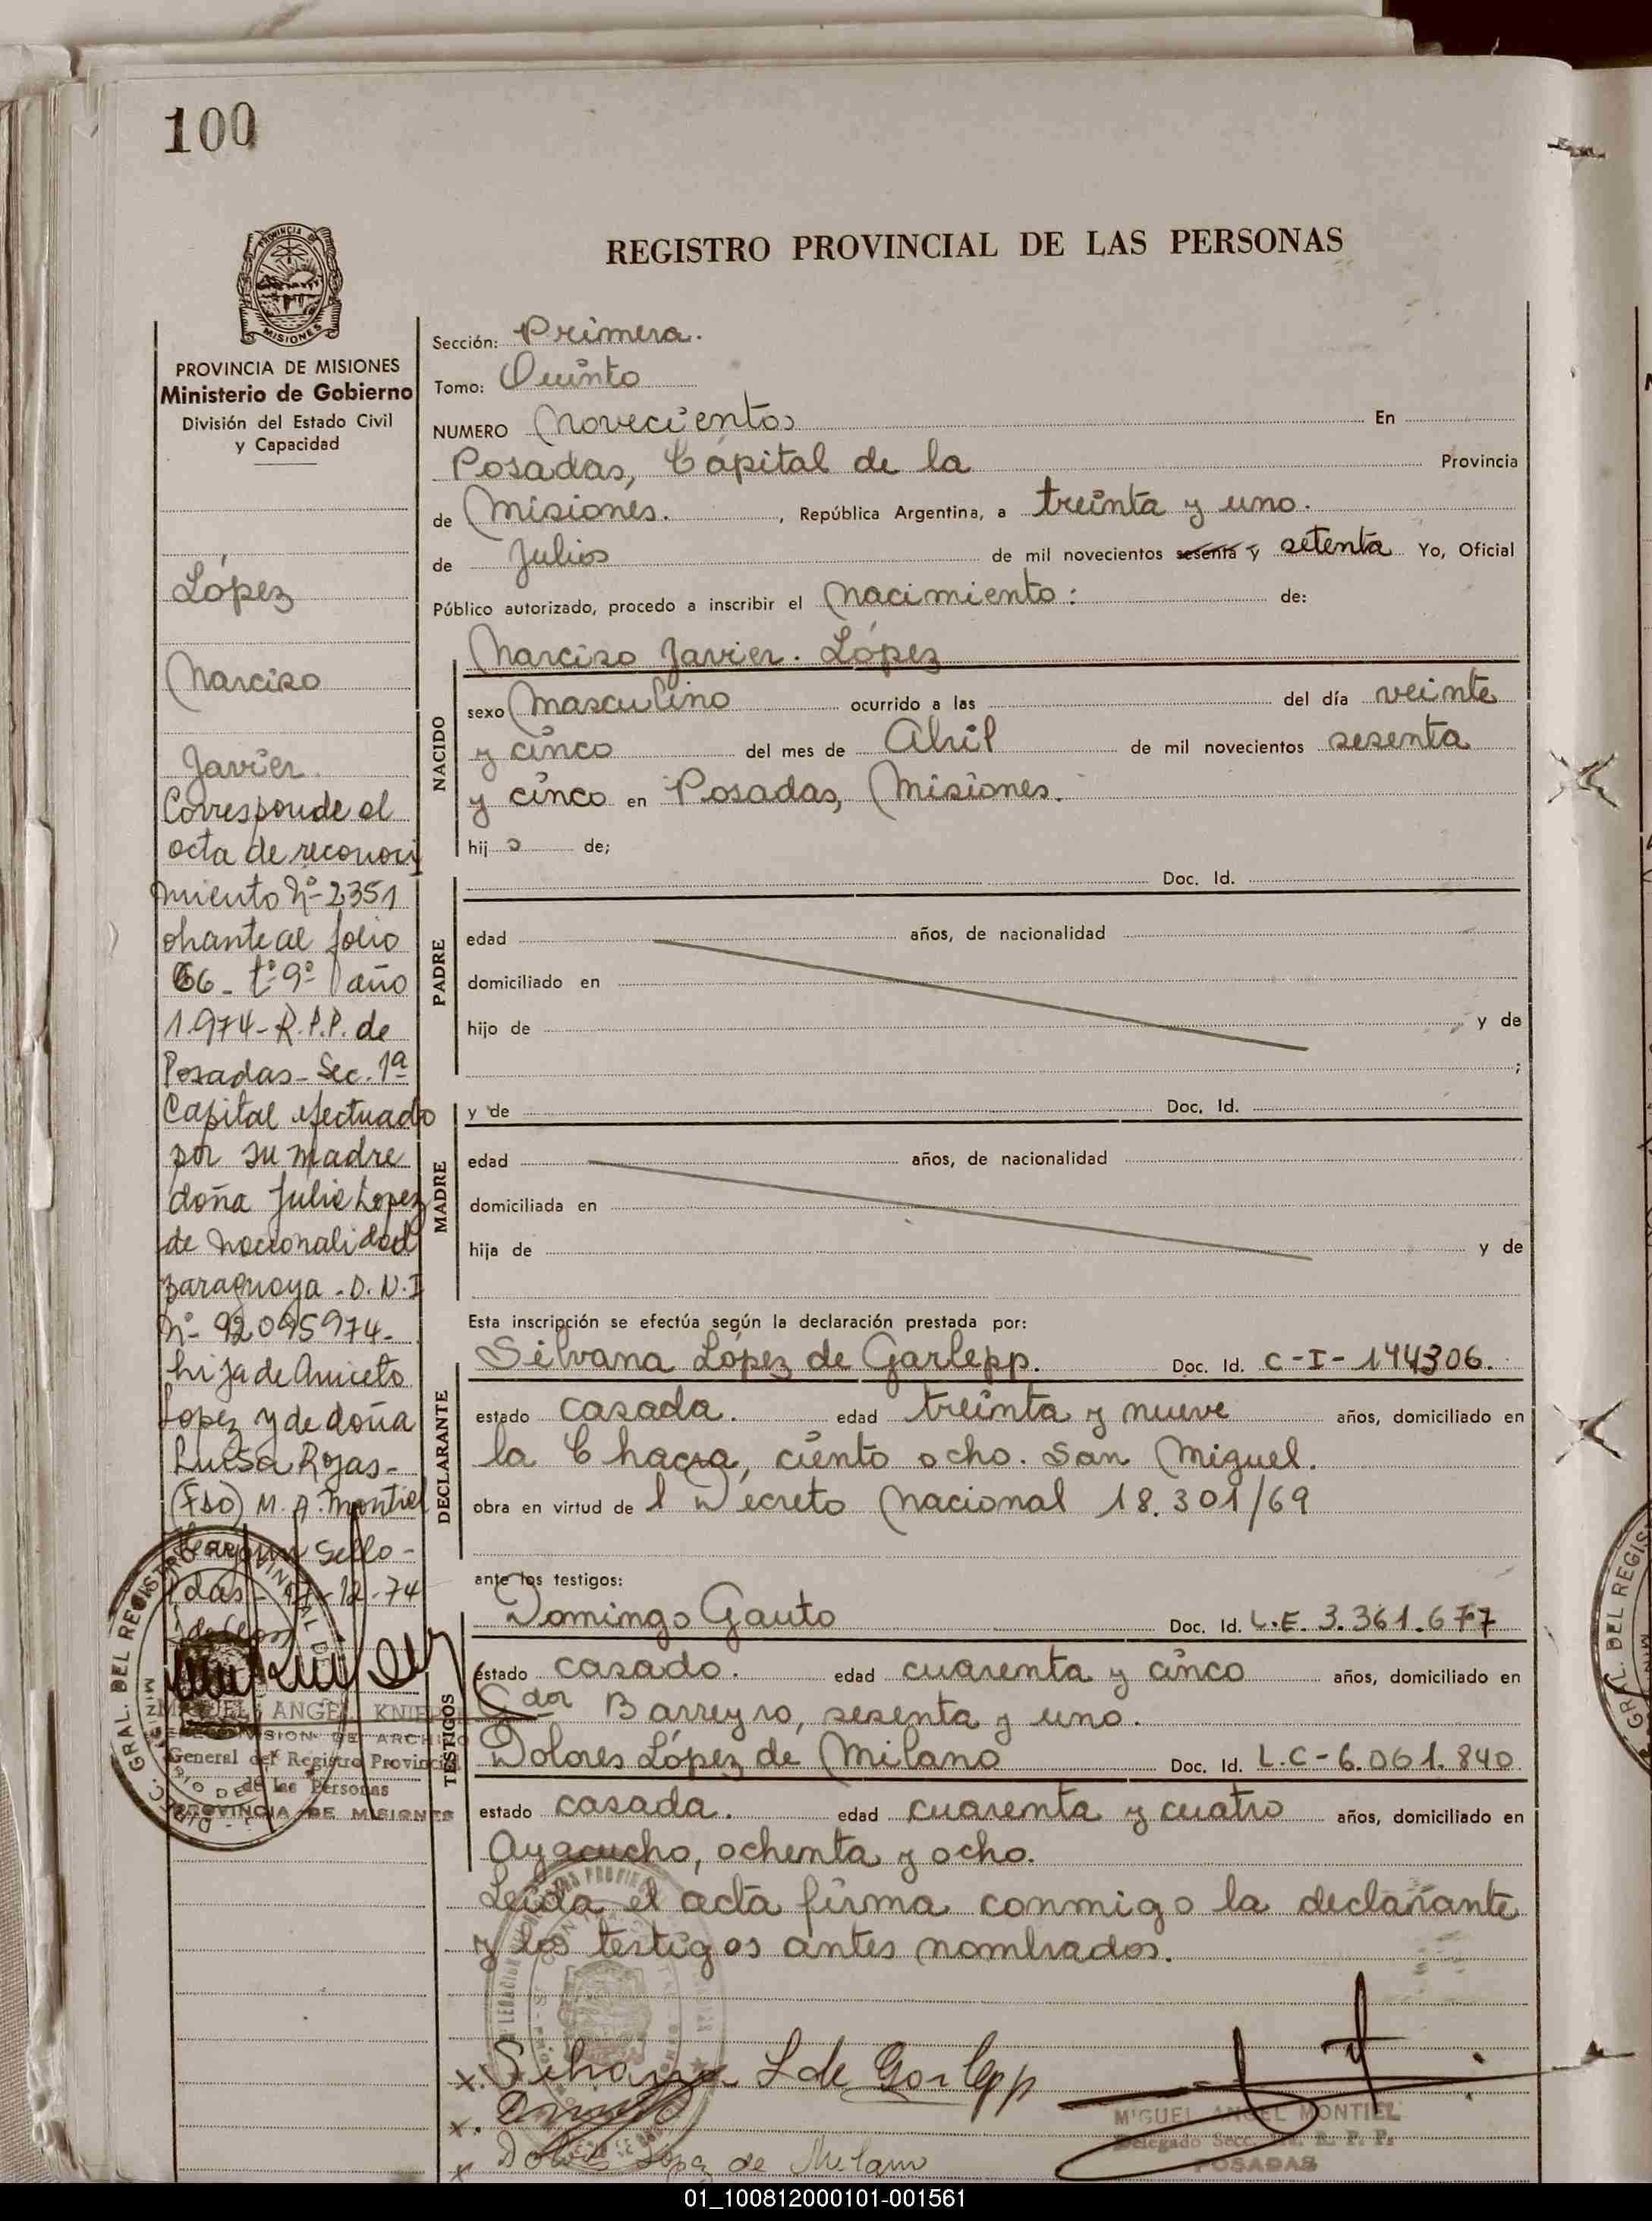 100
REGISTRO PROVINCIAL DE LAS PERSONAS
PROVINCIA DE MISIONES
Ministerio de Gobierno
División del Estado Civil
y Capacidad
López
Narciso
Javier.
Corresponde al
acta de reconoci
miento Nº 2351
obrante al folio
66 - tº 9º año
1.974 - R.P.P. de
Posadas - Sec. 1ª
Capital efectuado
por su madre
doña Julia Lopez
de nacionalidad
paraguaya - D.N.I
Nº 92.095974 -
hija de Aniceto
Lopez y de doña
Luisa Rojas -
(Fdo) M. A. Montiel
Hay un Sello -
Pdas - -12-74
MIGUEL ANGEL
DIVISION DE ARCHIVO
General del Registro Provincial
de las Personas
PROVINCIA DE MISIONES
Sección: Primera.
Tomo: Quinto
NUMERO Novecientos En
Posadas, Capital de la Provincia
de Misiones. , República Argentina, a treinta y uno.
de Julio de mil novecientos sesenta y setenta Yo, Oficial
Público autorizado, procedo a inscribir el Nacimiento: de:
Narciso Javier. López
NACIDO
sexo Masculino ocurrido a las del día veinte
y cinco del mes de Abril de mil novecientos sesenta
y cinco en Posadas, Misiones.
hij o de;
PADRE
Doc. Id.
edad años, de nacionalidad
domiciliado en
hijo de y de
;
MADRE
y de Doc. Id.
edad años, de nacionalidad
domiciliada en
hija de y de
Esta inscripción se efectúa según la declaración prestada por:
DECLARANTE
Silvana López de Garlepp. Doc. Id. C-I-144306.
estado casada. edad treinta y nueve años, domiciliado en
la Chacra, ciento ocho. San Miguel.
obra en virtud de l Decreto Nacional 18.301/69
ante los testigos:
TESTIGOS
Domingo Gauto Doc. Id. L.E. 3.361.677
estado casado. edad cuarenta y cinco años, domiciliado en
Gdor Barreyro, sesenta y uno.
Dolores López de Milano Doc. Id. L.C-6.061.840
estado casada. edad cuarenta y cuatro años, domiciliado en
Ayacucho, ochenta y ocho.
Leída el acta firma conmigo la declarante
y los testigos antes nombrados.
x. Silvana L de Garlepp
x.
x Dolores López de Milano
MIGUEL ANGEL MONTIEL
Delegado Secc. 1ra. R. P. P.
POSADAS
01_100812000101-001561